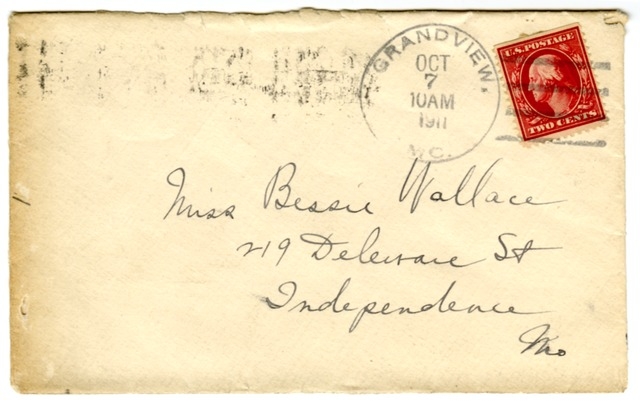 GRANDVIEW.
OCT
7
10AM
1911
MO.
U.S. POSTAGE
TWO CENTS
Miss Bessie Wallace
219 Deleware St
Independence
Mo